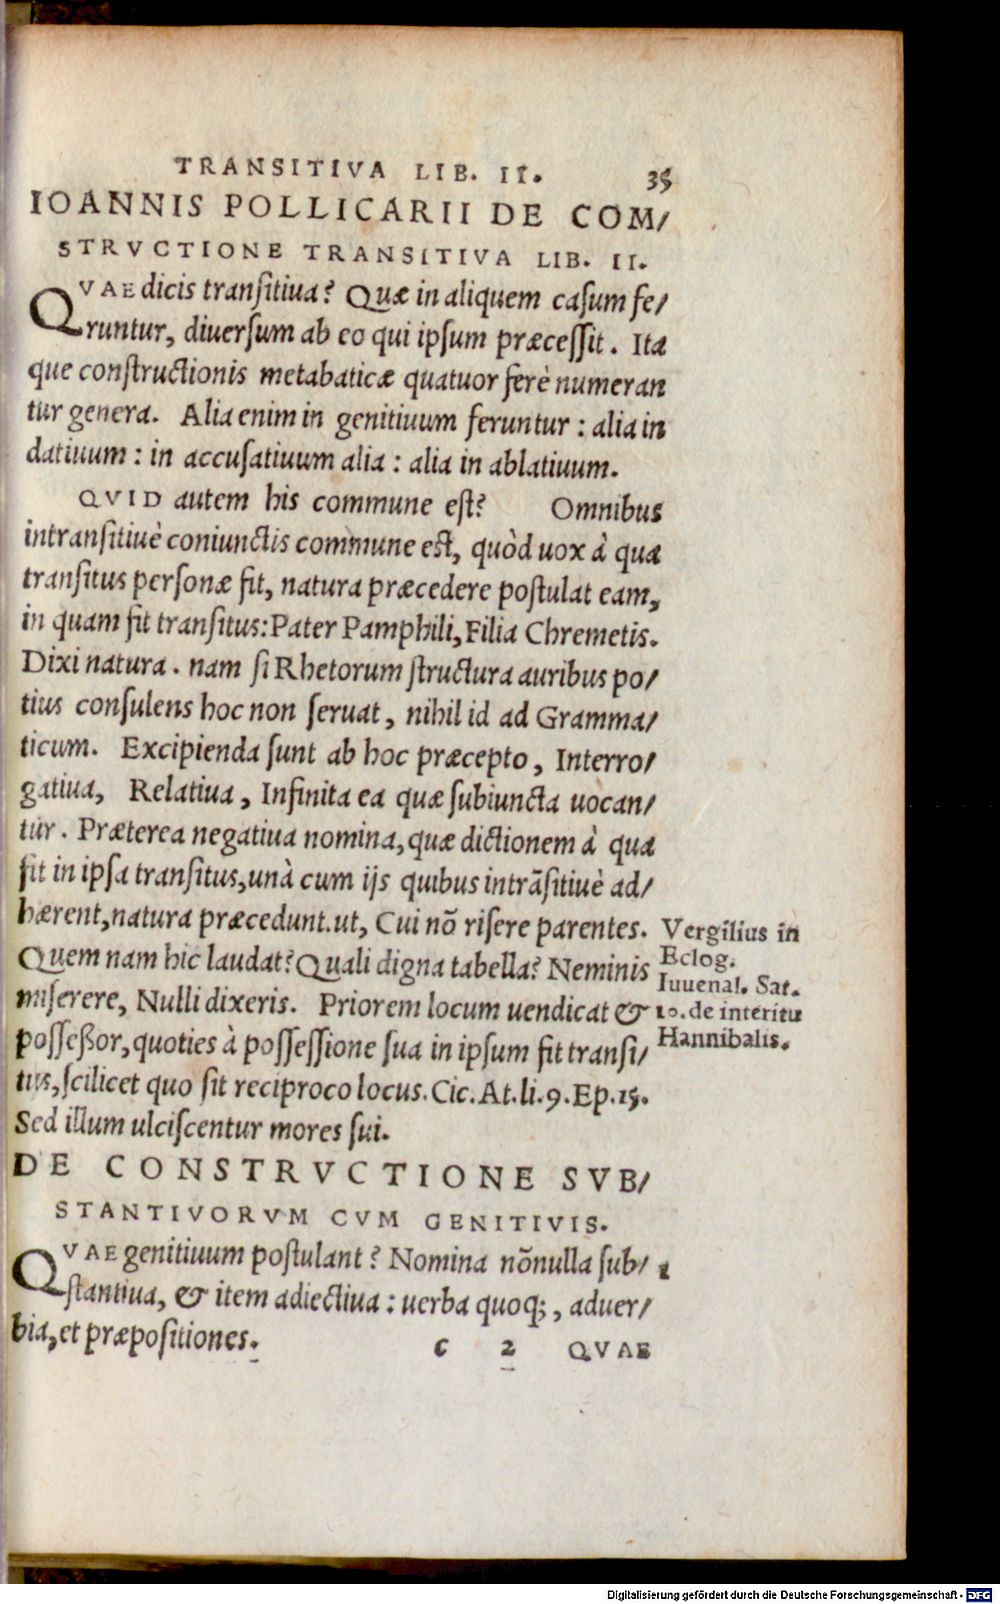 TRANSITIVA LIB. II. 35
IOANNIS POLLICARII DE COM/
STRVCTIONE TRANSITIVA LIB. II.
QVAE dicis transitiua? Quæ in aliquem casum fe/
runtur, diuersum ab eo qui ipsum præcessit. Ita
que constructionis metabaticæ quatuor ferè numeran
tur genera. Alia enim in genitiuum feruntur : alia in
datiuum : in accusatiuum alia : alia in ablatiuum.
QVID autem his commune est? Omnibus
intransitiuè coniunctis commune est, quòd uox à qua
transitus personæ fit, natura præcedere postulat eam,
in quam fit transitus: Pater Pamphili, Filia Chremetis.
Dixi natura. nam si Rhetorum structura auribus po/
tius consulens hoc non seruat, nihil id ad Gramma/
ticum. Excipienda sunt ab hoc præcepto, Interro/
gatiua, Relatiua, Infinita ea quæ subiuncta uocan/
tur. Præterea negatiua nomina, quæ dictionem à qua
fit in ipsa transitus, unà cum ijs quibus intrãsitiuè ad/
hærent, natura præcedunt. ut, Cui nõ risere parentes.
Quem nam hic laudat? Quali digna tabella? Neminis
miserere, Nulli dixeris. Priorem locum uendicat &
posseßor, quoties à possessione sua in ipsum fit transi/
tus, scilicet quo sit reciproco locus. Cic. At. li. 9. Ep. 15.
Sed illum ulciscentur mores sui.
Vergilius in
Eclog.
Iuuenal. Sat.
10. de interitu
Hannibalis.
DE CONSTRVCTIONE SVB/
STANTIVORVM CVM GENITIVIS.
QVAE genitiuum postulant? Nomina nõnulla sub/ 1
stantiua, & item adiectiua : uerba quoq;, aduer/
bia, et præpositiones.
c 2 QVAE
Digitalisierung gefördert durch die Deutsche Forschungsgemeinschaft - DFG